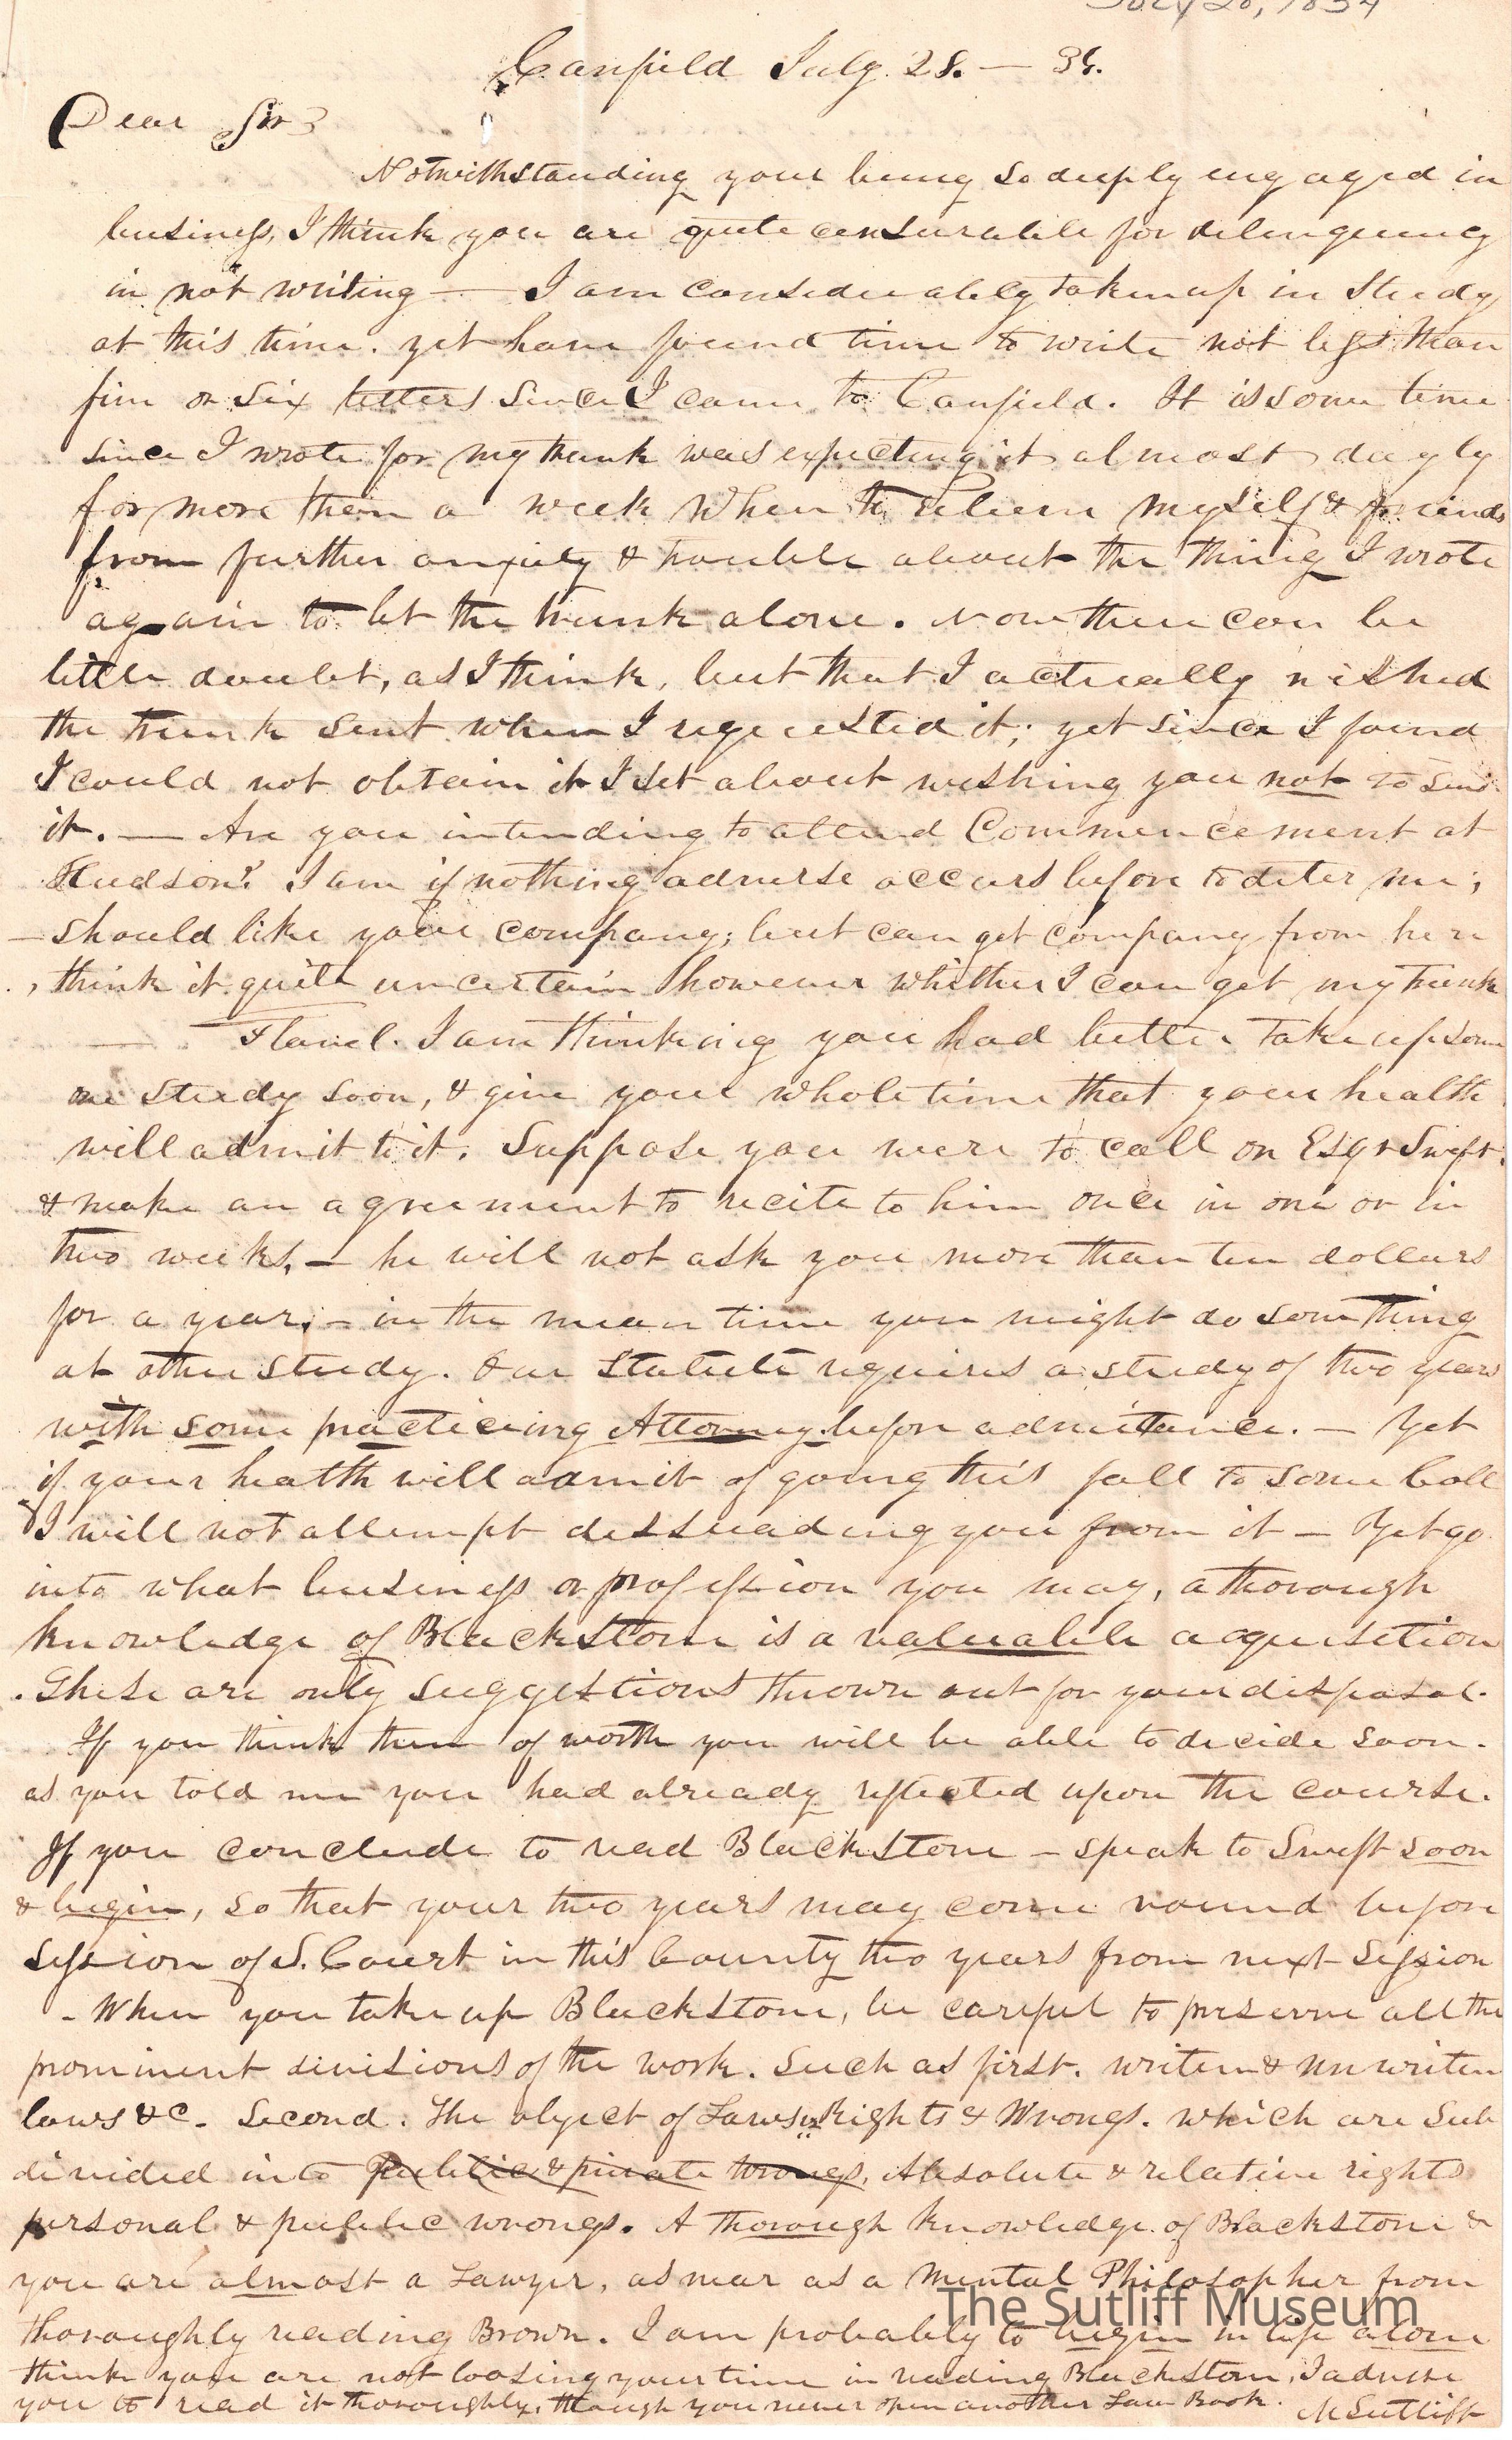 July 28, 1834
Canfield July. 28. — 34.
Dear Sir
Notwithstanding your being so deeply engaged in
business, I think you are quite censurable for delinquency
in not writing — I am considerably taken up in Study
at this time. yet have found time to write not less than
five or six letters since I came to Canfield. It is some time
since I wrote for my trunk was expecting it almost dayly
for more than a week When to relieve myself & friends
from further anxiety & trouble about the thing I wrote
again to let the trunk alone. Now there can be
little doubt, as I think, but that I actually wished
the trunk sent when I requested it; yet since I found
I could not obtain it I set about wishing you not to send
it. — Are you intending to attend Commencement at
Hudson? I am if nothing adverse occurs before to deter me;
— should like your company; but can get company from here
, think it quite uncertain however whether I can get my trunk
— Flavel. I am thinking you had better take up some
one study soon, & give your whole time that your health
will admit to it. Suppose you were to call on Esqr Swift.
& make an agreement to recite to him once in one or in
two weeks, — he will not ask you more than ten dollars
for a year; — in the mean time you might do something
at other study. Our Statute requires a study of two years
with some practicing Attorney before admittance. — Yet
if your health will admit of going this fall to some Coll
I will not attempt dissuading you from it — Yet go
into what business or profession you may, a thorough
knowledge of Blackstone is a valuable acquisition
. These are only suggestions thrown out for your disposal.
If you think them of worth you will be able to decide soon.
as you told me you had already reflected upon the course.
If you conclude to read Blackstone — speak to Swift soon
& begin, so that your two years may come round before
session of S. Court in this County two years from next session
- When you take up Blackstone, be careful to preserve all the
prominent divisions of the work. Such as first. writen & unwriten
laws &c. Second. The object of Laws Rights & Wrongs. which are Sub
divided into Public & private wrongs, Absolute & relative rights
personal & public wrongs. A thorough knowledge of Blackstone &
you are almost a Lawyer, as near as a Mental Philosopher from
thoroughly reading Brown. I am probably to begin in life alone
think you are not loosing your time in reading Blackstone, I advise
you to read it thoroughly, though you never open another Law Book. M Sutliff
The Sutliff Museum